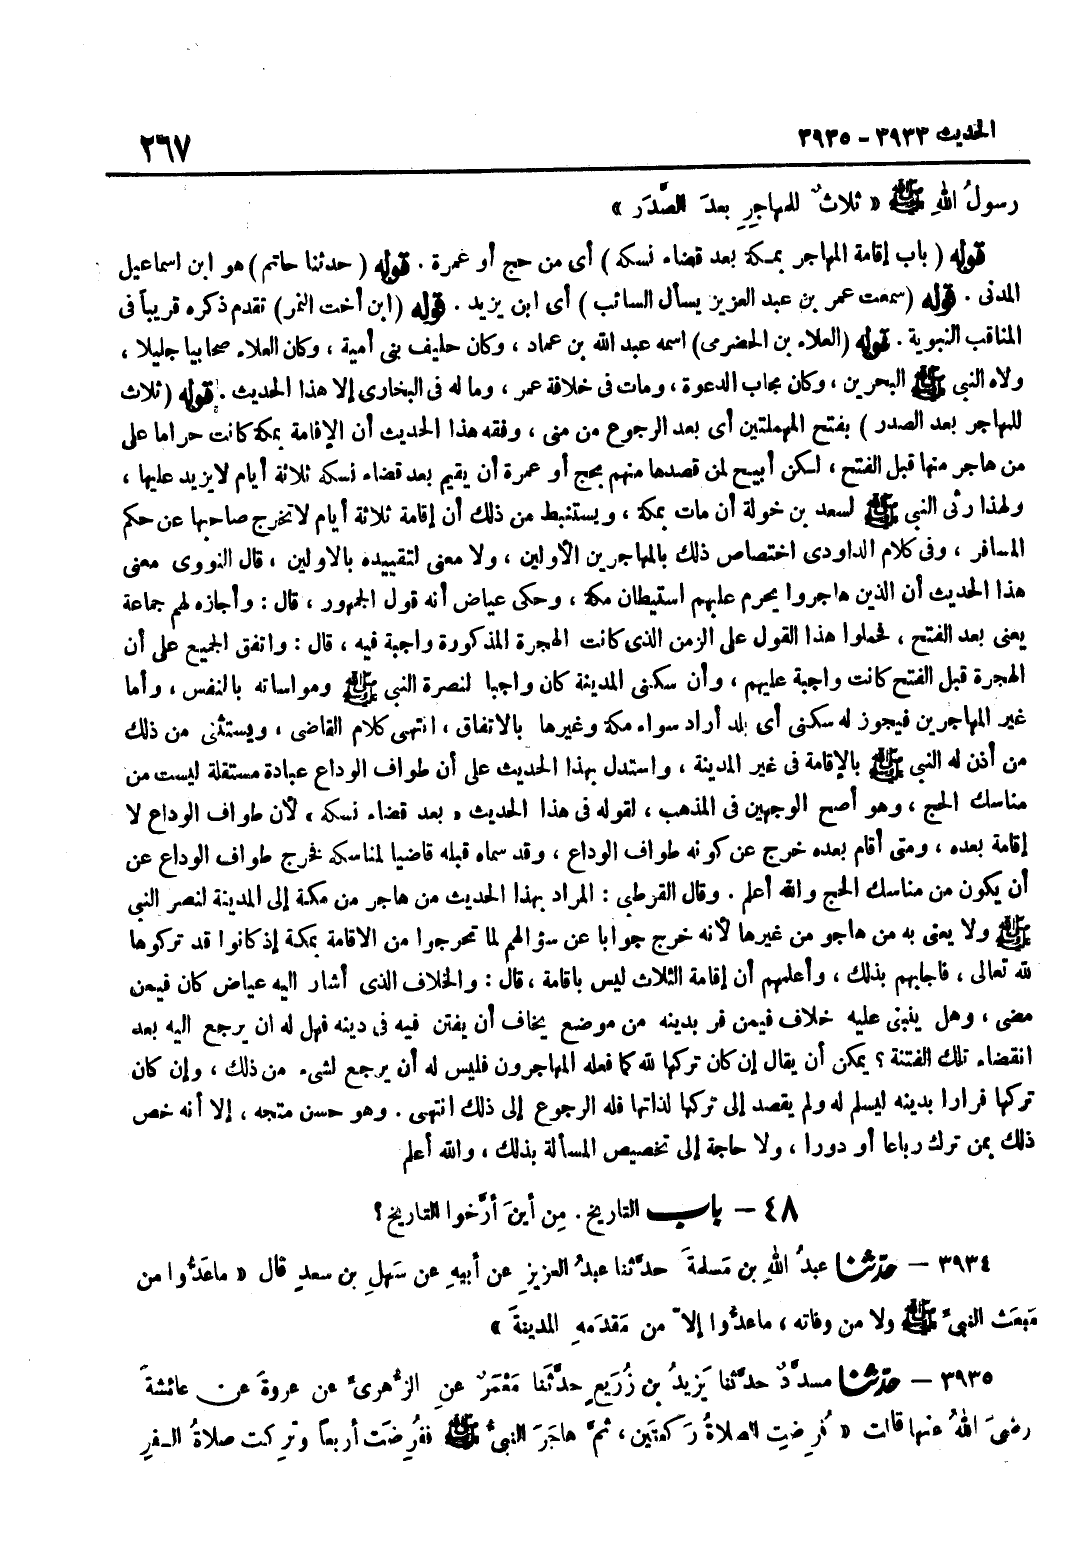 الحديث ٣٩٣٣ - ٣٩٣٥
٢٦٧
رسولُ اللهِ ﷺ « ثلاثٌ للمهاجِرِ بعدَ الصَّدَر »
قوله ( باب إقامة المهاجر بمكة بعد قضاء نسكه ) أى من حج أو عمرة . قوله ( حدثنا حاتم ) هو ابن اسماعيل
المدنى . قوله ( سمعت عمر بن عبد العزيز يسأل السائب ) أى ابن يزيد . قوله ( ابن أخت النمر ) تقدم ذكره قريباً فى
المناقب النبوية . قوله ( العلاء بن الحضرمى ) اسمه عبد الله بن عماد ، وكان حليف بنى أمية ، وكان العلاء صحابيا جليلا ،
ولاه النبى ﷺ البحرين ، وكان مجاب الدعوة ، ومات فى خلافة عمر ، وما له فى البخارى إلا هذا الحديث . قوله ( ثلاث
للمهاجر بعد الصدر ) بفتح المهملتين أى بعد الرجوع من منى ، وفقه هذا الحديث أن الإقامة بمكة كانت حراما على
من هاجر منها قبل الفتح ، لكن أبيح لمن قصدها منهم بحج أو عمرة أن يقيم بعد قضاء نسكه ثلاثة أيام لا يزيد عليها ،
ولهذا رثى النبى ﷺ لسعد بن خولة أن مات بمكة ، ويستنبط من ذلك أن إقامة ثلاثة أيام لا تخرج صاحبها عن حكم
المسافر ، وفى كلام الداودى اختصاص ذلك بالمهاجرين الأولين ، ولا معنى لتقييده بالاولين ، قال النووى معنى
هذا الحديث أن الذين هاجروا يحرم عليهم استيطان مكة ، وحكى عياض أنه قول الجمهور ، قال : وأجازه لهم جماعة
يعنى بعد الفتح ، فحملوا هذا القول على الزمن الذى كانت الهجرة المذكورة واجبة فيه ، قال : واتفق الجميع على أن
الهجرة قبل الفتح كانت واجبة عليهم ، وأن سكنى المدينة كان واجبا لنصرة النبى ﷺ ومواساته بالنفس ، وأما
غير المهاجرين فيجوز له سكنى أى بلد أراد سواء مكة وغيرها بالاتفاق ، انتهى كلام القاضى ، ويستثنى من ذلك
من أذن له النبى ﷺ بالإقامة فى غير المدينة ، واستدل بهذا الحديث على أن طواف الوداع عبادة مستقلة ليست من
مناسك الحج ، وهو أصح الوجهين فى المذهب ، لقوله فى هذا الحديث « بعد قضاء نسكه » لأن طواف الوداع لا
إقامة بعده ، ومتى أقام بعده خرج عن كونه طواف الوداع ، وقد سماه قبله قاضيا لمناسكه فخرج طواف الوداع عن
أن يكون من مناسك الحج والله أعلم . وقال القرطبى : المراد بهذا الحديث من هاجر من مكة إلى المدينة لنصر النبى
ﷺ ولا يعنى به من هاجر من غيرها لأنه خرج جوابا عن سؤالهم لما تحرجوا من الاقامة بمكة إذ كانوا قد تركوها
لله تعالى ، فاجابهم بذلك ، وأعلمهم أن إقامة الثلاث ليس باقامة ، قال : والخلاف الذى أشار اليه عياض كان فيمن
مضى ، وهل ينبنى عليه خلاف فيمن فر بدينه من موضع يخاف أن يفتن فيه فى دينه فهل له ان يرجع اليه بعد
انقضاء تلك الفتنة ؟ يمكن أن يقال إن كان تركها لله كما فعله المهاجرون فليس له أن يرجع لشىء من ذلك ، وإن كان
تركها فرارا بدينه ليسلم له ولم يقصد إلى تركها لذاتها فله الرجوع إلى ذلك انتهى . وهو حسن متجه ، إلا أنه خص
ذلك بمن ترك رباعا أو دورا ، ولا حاجة إلى تخصيص المسألة بذلك ، والله أعلم
٤٨ - باب التاريخ . مِن أينَ أرَّخوا التاريخ ؟
٣٩٣٤ - حدّثنا عبدُ اللهِ بن مَسلمةَ حدَّثنا عبدُ العزيزِ عن أبيهِ عن سَهلِ بن سعدٍ قال « ماعَدُّوا من
مَبعَث النبىِّ ﷺ ولا من وفاته ، ماعدُّوا إلاّ من مَقدَمهِ المدينةَ »
٣٩٣٥ - حدّثنا مسدَّدٌ حدَّثنا يَزيدُ بن زُرَيعٍ حدَّثَنا مَعْمَرٌ عنِ الزُّهرىِّ عن عروةَ عن عائشةَ
رضىَ اللهُ عنها قالت « فُرِضتِ الصلاةُ رَكعتَين ، ثمَّ هاجَرَ النبىُّ ﷺ ففُرِضَت أربعاً وتركت صلاةُ السفرِ